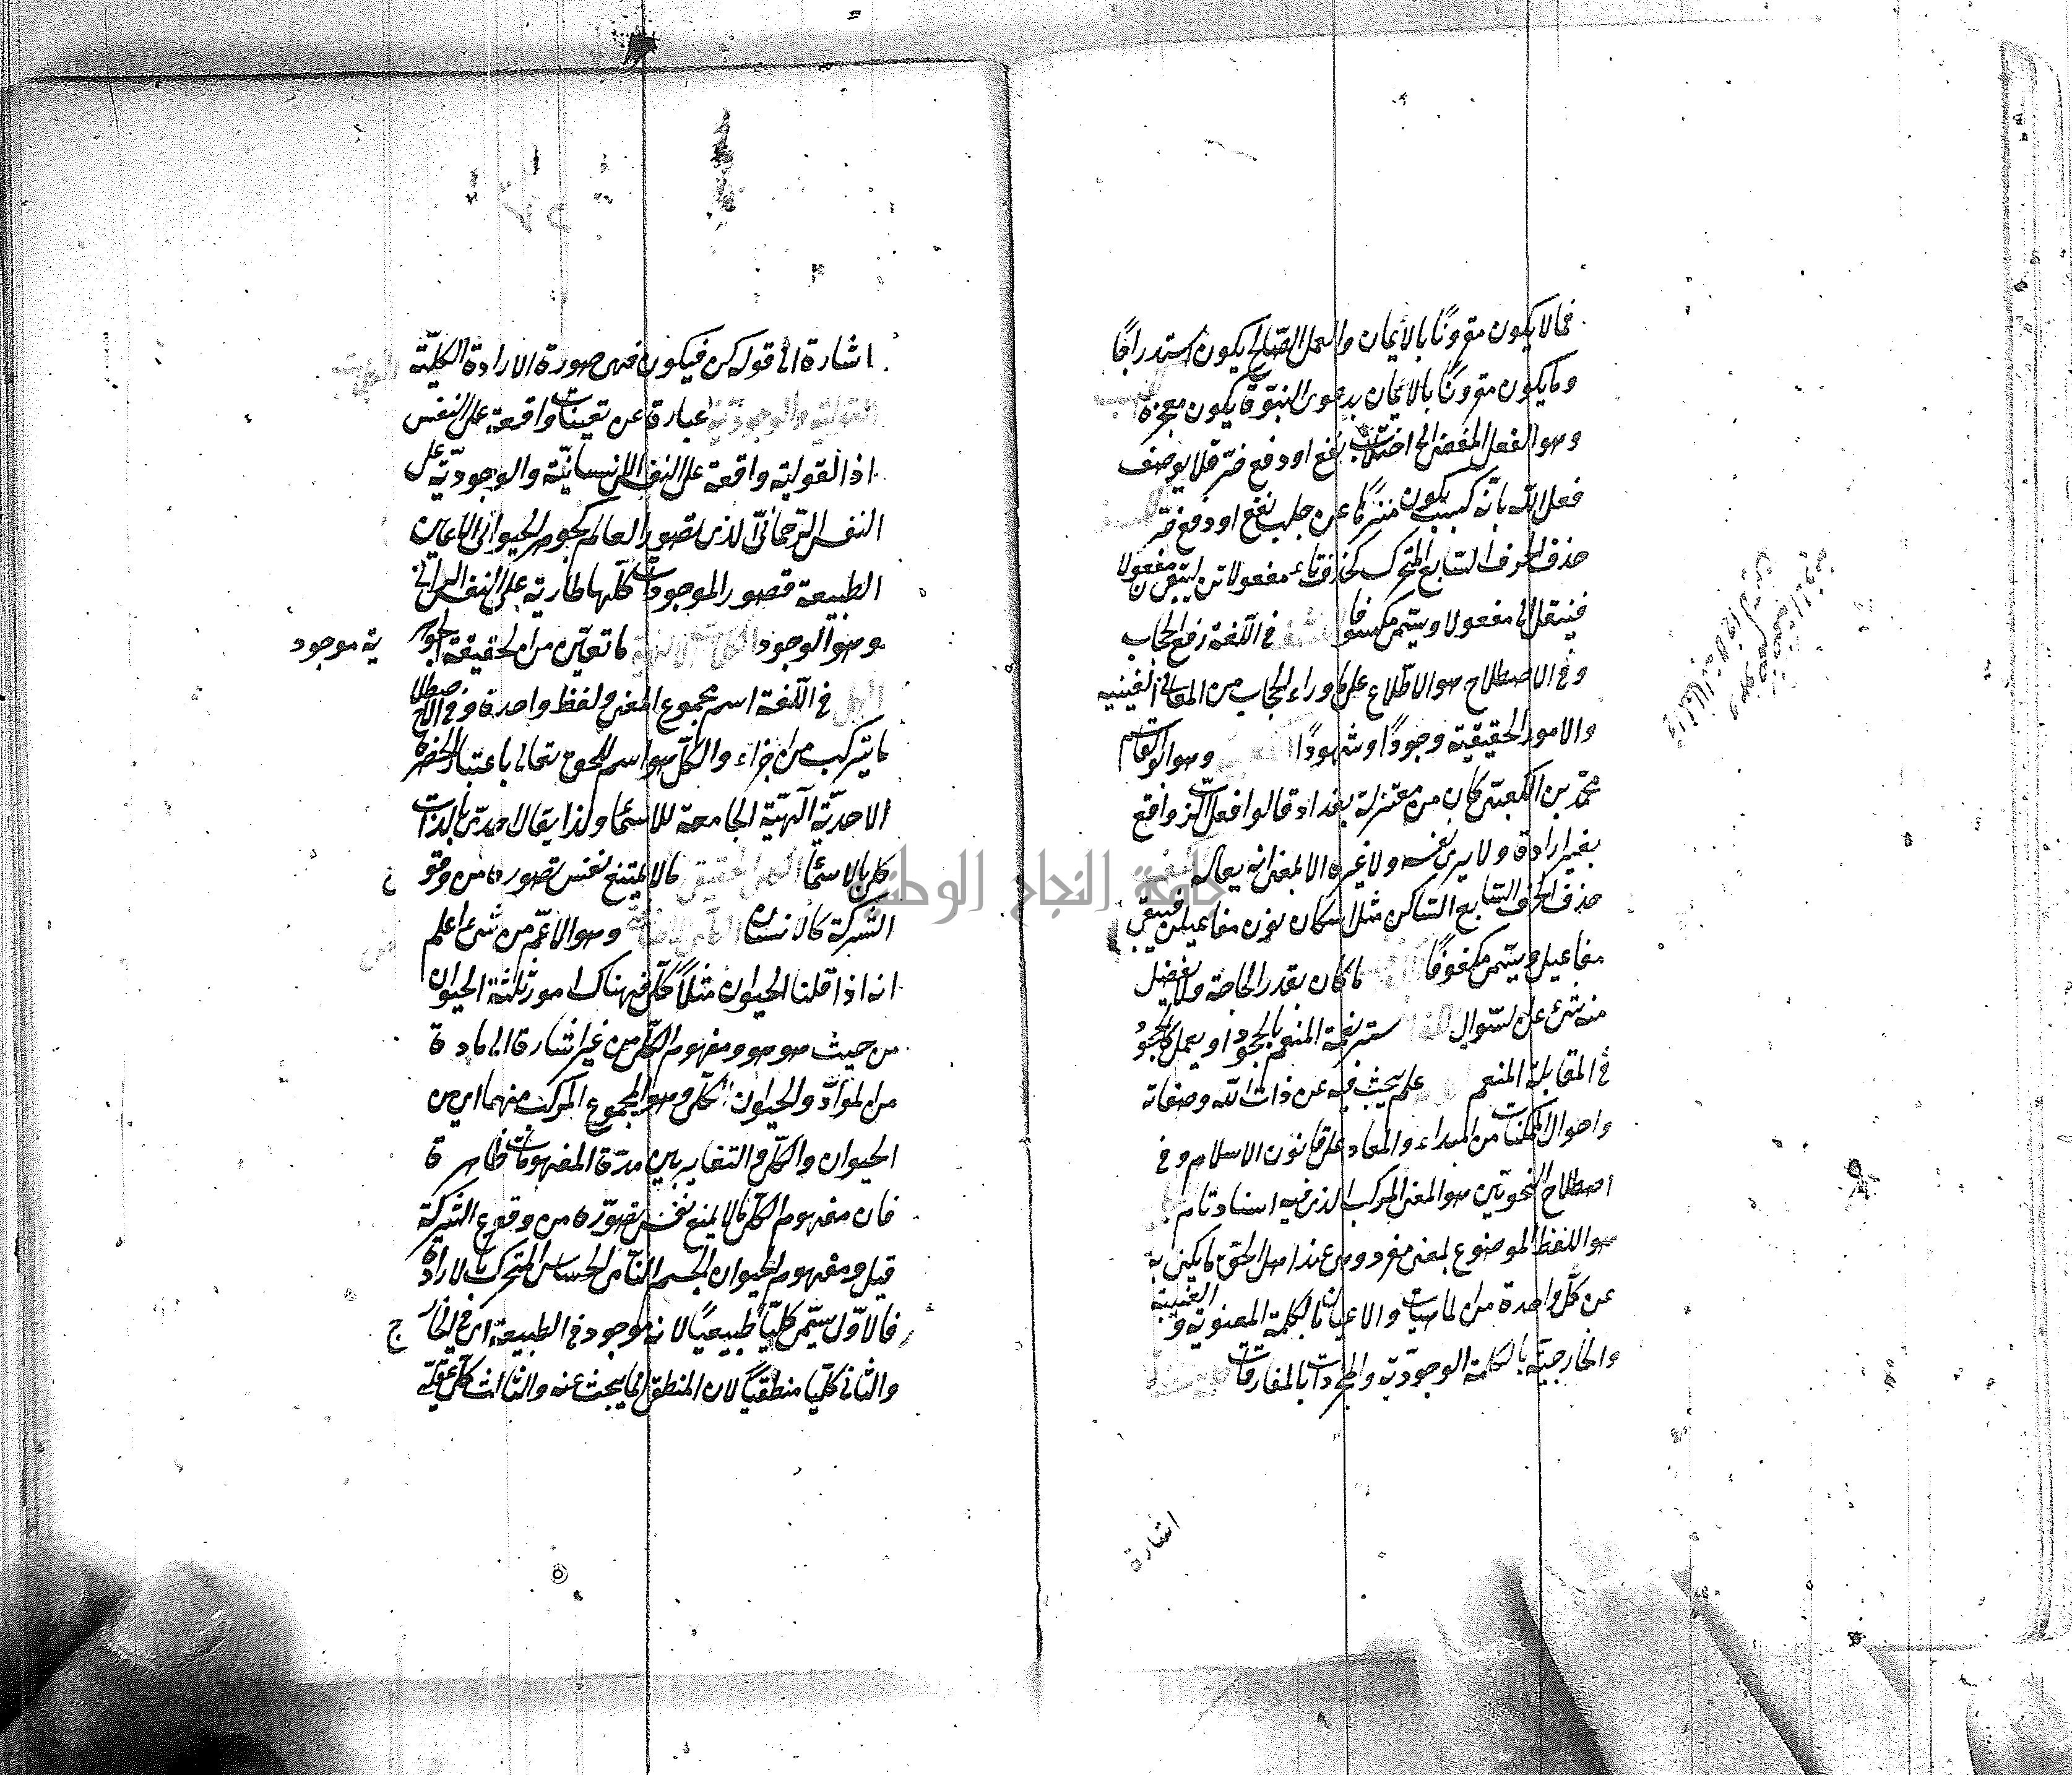 فما لا يكون مقرونًا بالايمان والعمل الصالح يكون استدراجًا
وما يكون مقرونًا بالايمان بدعوى النبوة يكون معجزة
وهو الفعل المفضى الى اجتلاب نفع او دفع ضر فلا يوصف
فعل الله بانه كسب لكونه منزهًا عن جلب نفع او دفع ضر
حذف الحرف السابع المتحرك كحذف تاء مفعولات ليبقى مفعولا
فينقل الى مفعولن ويسمى مكسوفا فى اللغة رفع الحجاب
وفى الاصطلاح هو الاطلاع على ما وراء الحجاب من المعانى الغيبية
والامور الحقيقية وجودًا وشهودًا وهو ابو القاسم
محمد بن الكعبى كان من معتزلة بغداد قالوا فعل الرب واقع
بغير ارادة ولا يرى نفسه ولا غيره الا بمعنى انه يعلمه
حذف الحرف السابع الساكن مثل اسكان نون مفاعيلن فيبقى
مفاعيل ويسمى مكفوفًا ما كان بقدر الحاجة ولا يفضل
منه شئ عن السوال ستر نعمة المنعم بالجحود او بعمل كالجحود
فى المقابلة المنعم علم يبحث فيه عن ذات الله وصفاته
واحوال الممكنات من المبداء والمعاد على قانون الاسلام وفى
اصطلاح النحويين هو المعنى المركب الذى فيه اسناد تام
هو اللفظ الموضوع لمعنى مفرد وهى عند اهل الحق ما يكنى به
عن كل واحدة من الماهيات والاعيان بالكلمة المعنوية والغيبية
والخارجية بالكلمة الوجودية والمجردات بالمفارقات
اشارة
اشارة الى قوله كن فيكون فهى صورة الارادة الكلية
القولية والوجودية عبارة عن تعينات واقعة على النفس
اذ القولية واقعة على النفس الانسانية والوجودية على
النفس الرحمانى الذى لصور العالم كجوهر الحيوانى
الطبيعة فصور الموجودات كلها طارية على النفس الرحمانى
وهو الوجود ما تعين من الحقيقة الجوهرية موجود
فى اللغة اسم مجموع المعنى ولفظ واحدة وفى الاصطلاح
ما يتركب من اجزاء والكل هو اسم للحق تعالى باعتبار الحضرة
الاحدية الالهية الجامعة للاسماء ولذا يقال احدى بالذات
كل بالاسماء الكلى الحقيقى ما لا يمتنع نفس تصوره من وقوع
الشركة كالانسان وهو الاعم من شئ اعلم
انه اذا قلنا الحيوان مثلًا كلى فهناك امور ثلثة الحيوان
من حيث هو هو ومفهوم الكلى من غير اشارة الى مادة
من المواد والحيوان الكلى وهو المجموع المركب منهما اى من
الحيوان والكلى والتغاير بين هذة المفهومات ظاهرة
فان مفهوم الكلى ما لا يمنع نفس تصوره من وقوع الشركة
قيل ومفهوم الحيوان الجسم النامى الحساس المتحرك بالارادة
فالاول يسمى كليًا طبيعيًا لانه موجود فى الطبيعة اى فى الخارج
والثانى كليا منطقيًا لان المنطق انما يبحث عنه والثالث كلى عقلى
جامعة النجاح الوطنية